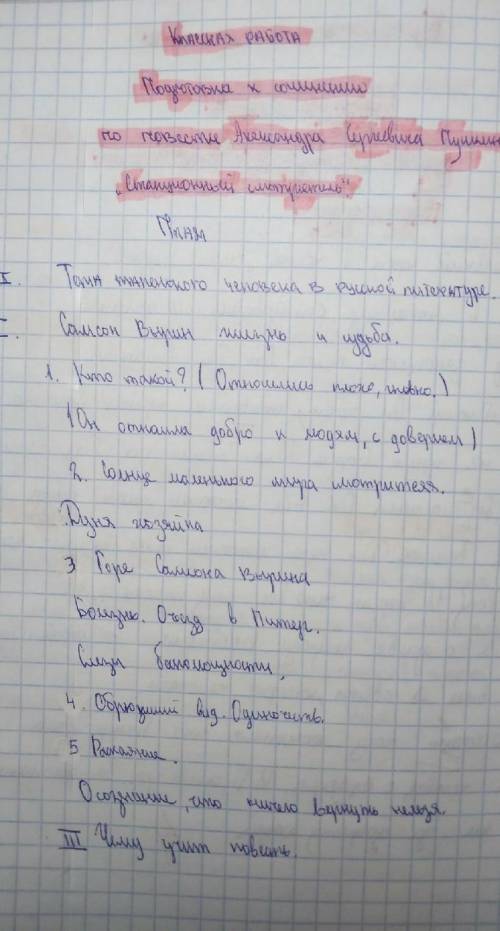 Классная работа
Подготовка к сочинению
по повести Александра Сергеевича Пушкин
"Станционный смотритель".
План
I. Тема маленького человека в русской литературе.
I. Самсон Вырин жизнь и судьба.
1. Кто такой? (Относились плохо, гневно.)
(Он относился добро к людям, с доверием)
2. Солнце маленького мира смотрителя.
Дуня хозяйка
3 Горе Самсона Вырина
Болезнь. Отъезд в Питер.
Слезы беспомощности,
4. Обрюзший вид. Одиночеств.
5 Раскаяние.
Осознание, что ничего вернуть нельзя.
III Чему учит повесть.